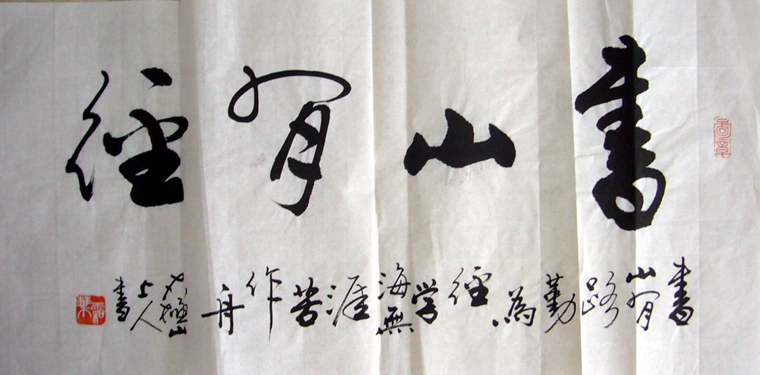 書山有徑
書山有路勤為徑学海無涯苦作舟
山上人書